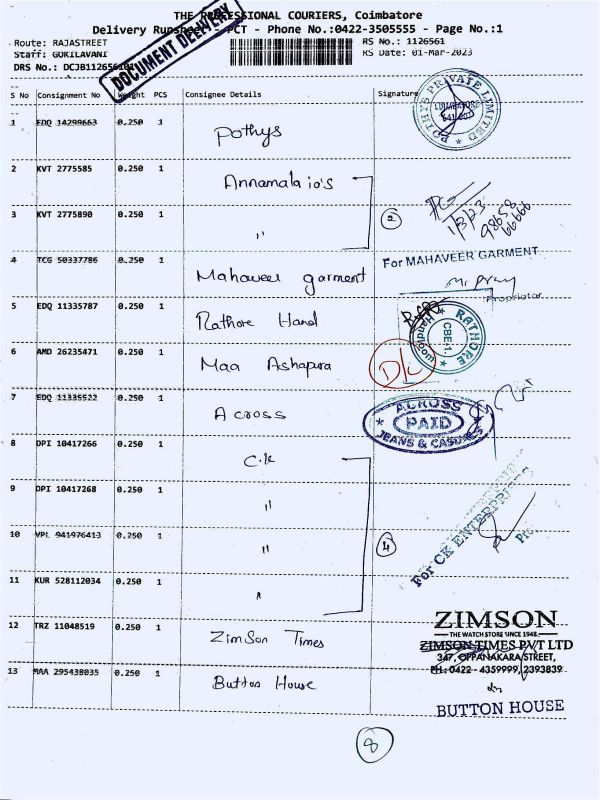 THE PROFESSIONAL COURIERS, Coimbatore
Delivery Runsheet - PCT - Phone No.:0422-3505555 - Page No.:1
Route: RAJASTREET
Staff: GOKILAVANI
RS No.: 1126561
RS Date: 01-Mar-2023
DOCUMENT DELIVERY
S No Consignment No Weight PCS Consignee Details Signature
1 EDQ 14299663 0.250 3 Pothys
POTHYS PRIVATE LIMITED
COIMBATORE
641 001
2 KVT 2775585 0.250 1 Annamalaio's
3 KVT 2775890 0.250 1 "
2
1/3/23
98658
66666
4 TCG 50337786 0.250 1 Mahaveer garment
For MAHAVEER GARMENT
Proprietor
5 EDQ 11335787 0.250 1 Rathore Hand
RATHORE Handloom
CBE-1
6 AMD 26235471 0.250 1 Maa Ashapura
D/L
7 EDQ 11335522 0.250 1 Across
ACROSS
PAID
JEANS & CASUALS
8 DPI 10417266 0.250 1 C.K
9 DPI 10417268 0.250 1 "
10 VPL 941976413 0.250 1 "
11 KUR 528112034 0.250 1 "
4
For CK ENTERPRISES
12 TRZ 11048519 0.250 1 Zimson Times
ZIMSON
THE WATCH STORE SINCE 1948
ZIMSON TIMES PVT LTD
347, OPPANAKARA STREET,
PH: 0422 - 4359999, 2393839
13 MAA 295438035 0.250 1 Button House
BUTTON HOUSE
8